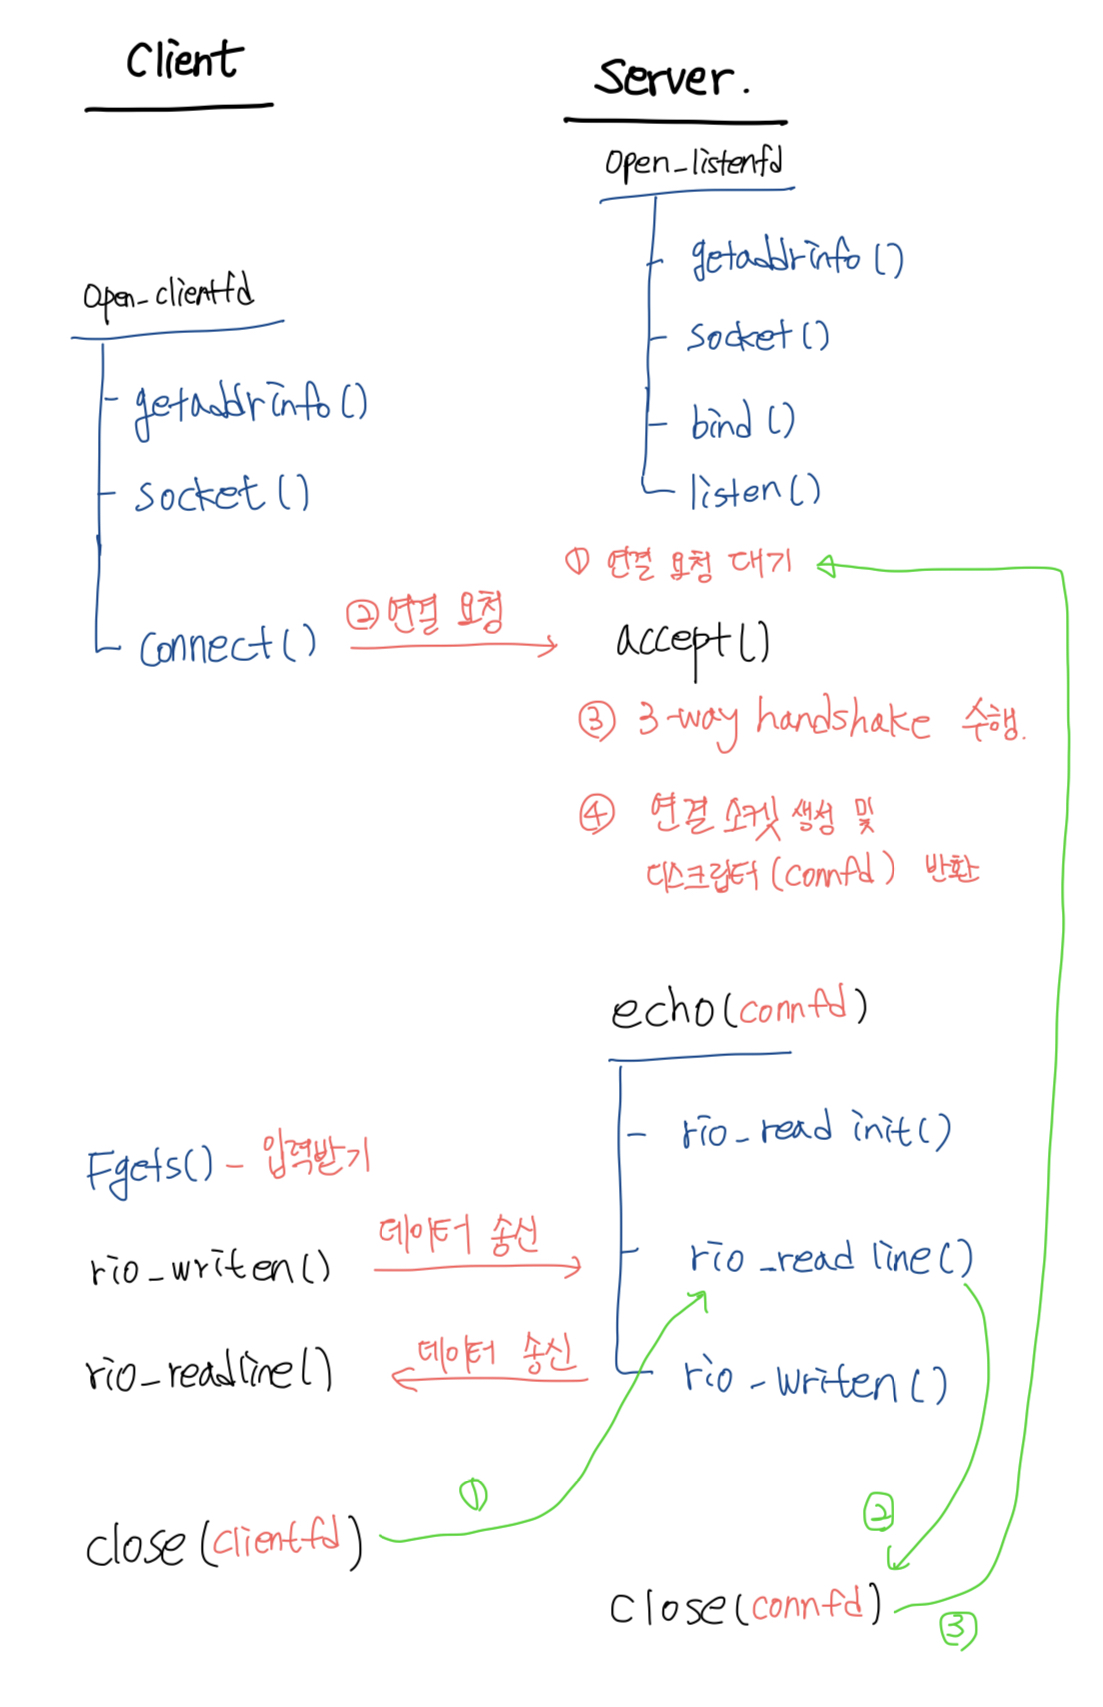 Client
Server.
open_listenfd
getaddrinfo()
socket()
bind()
listen()
open_clientfd
getaddrinfo()
socket()
connect()
② 연결 요청
① 연결 요청 대기
accept()
③ 3-way handshake 수행.
④ 연결 소켓 생성 및
디스크립터(connfd) 반환
echo(connfd)
rio_read init()
rio_read line()
rio_writen()
Fgets() - 입력받기
rio_writen()
데이터 송신
rio_readline()
데이터 송신
close(clientfd)
①
②
close(connfd)
③